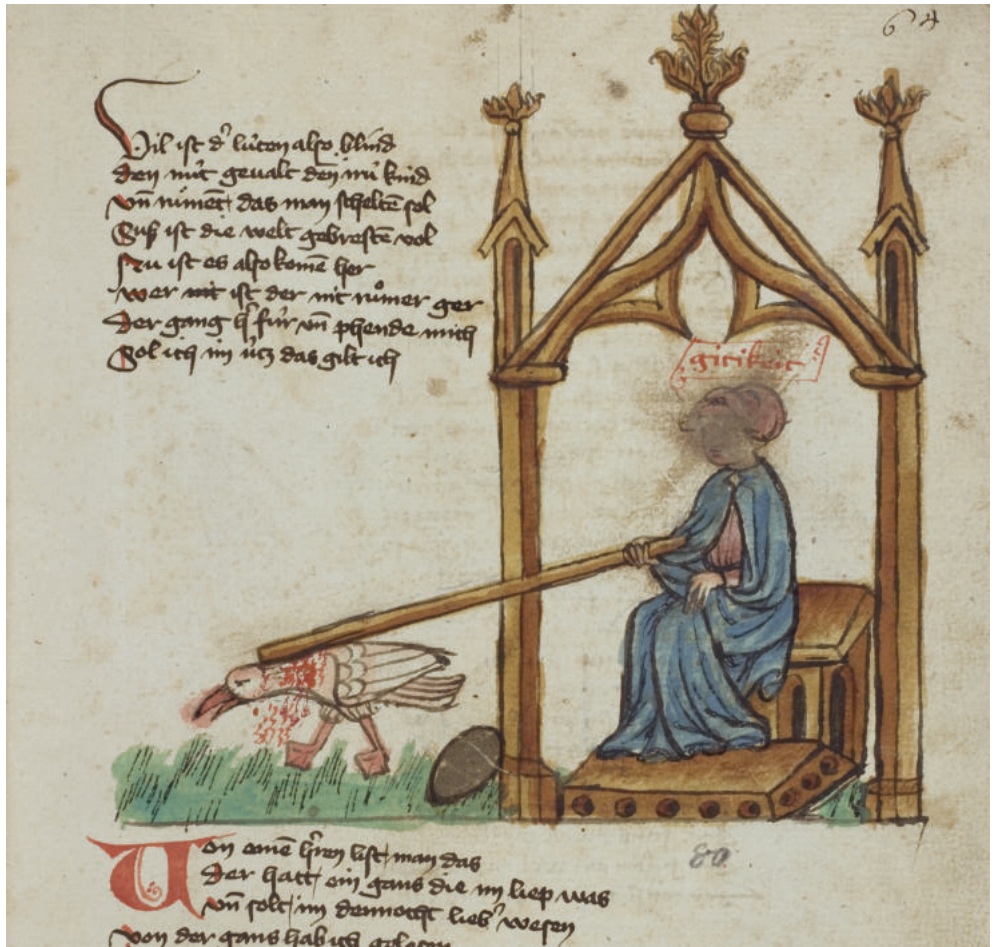 64
Vil ist dˀ lúten also blind
Den mút gevalt den irú kind
Vn̄ rúmēt das man scheltē sol
Suß ist die welt gebrestē vol
Nu ist es also komē her
wer nit ist der nit růmer ger
Der gang hˀ fúr vn̄ phende mich
Sol ich im útz das gilt ich
gitikeit
Von einē hˀren list man das
Der hatt ein gans die im liep was
vn̄ solt im dennocht liebˀ wesen
von der gans hab ich gelesen
80